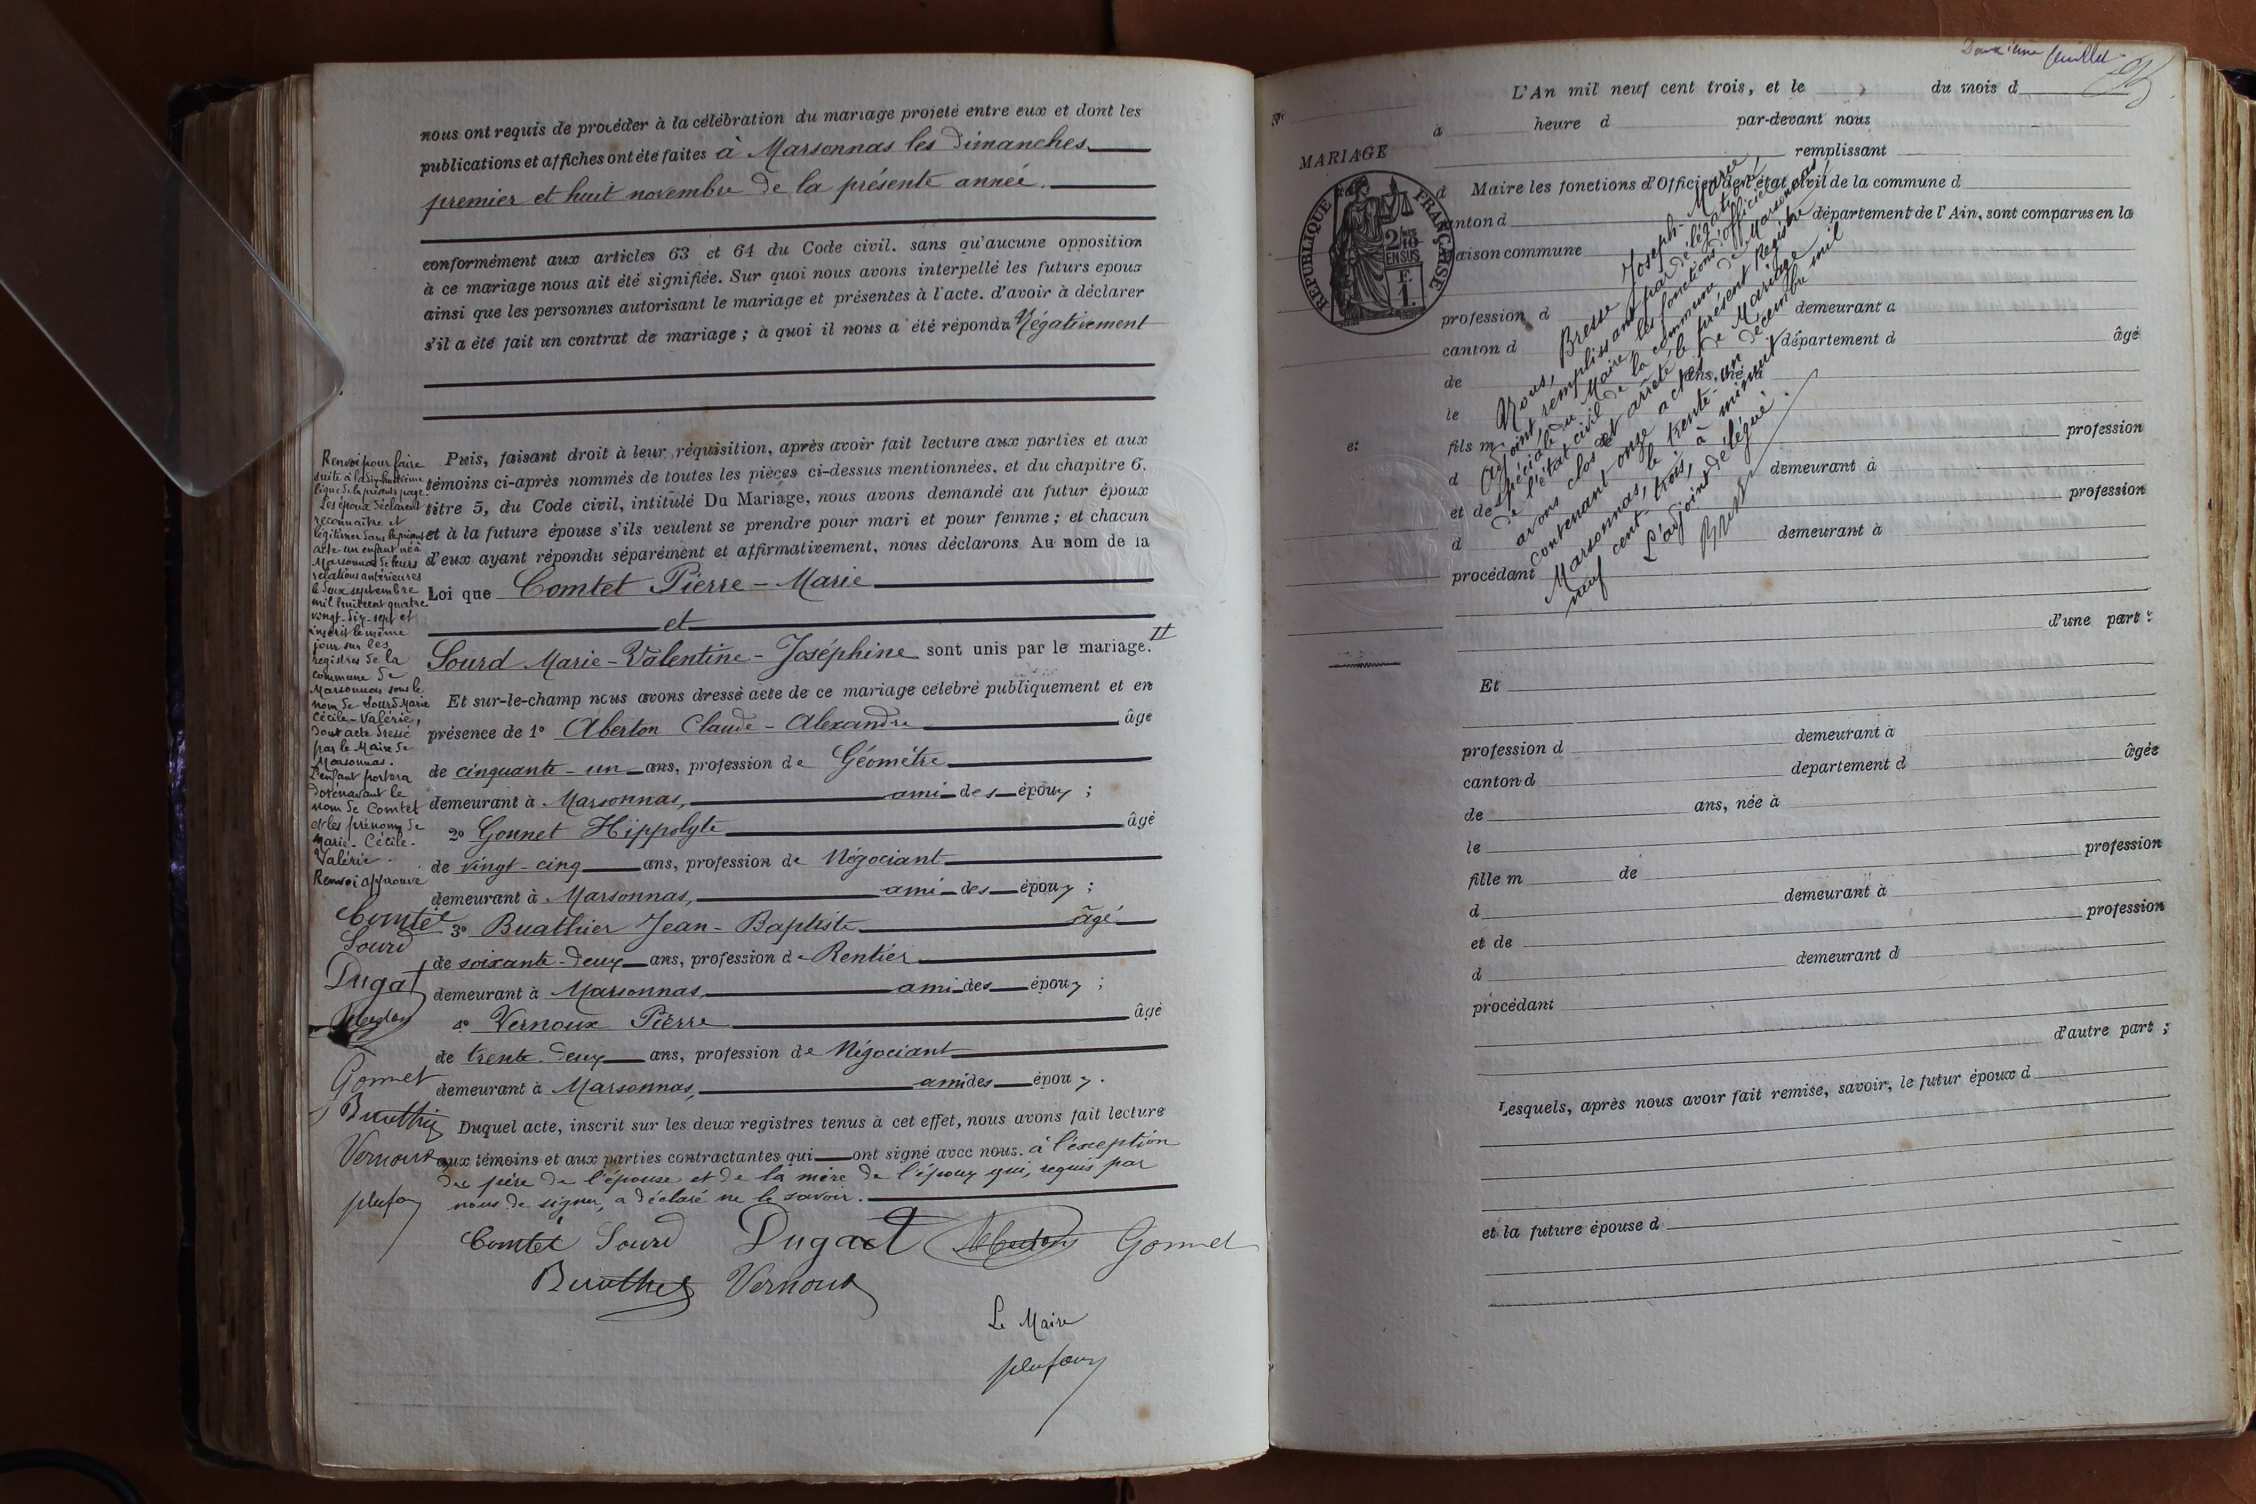 nous ont requis de procéder à la célébration du mariage projeté entre eux et dont les
publications et affiches ont été faites à Marsonnas les dimanches
premier et huit novembre de la présente année.
conformément aux articles 63 et 64 du Code civil. sans qu'aucune opposition
à ce mariage nous ait été signifiée. Sur quoi nous avons interpellé les futurs epoux
ainsi que les personnes autorisant le mariage et présentes à l'acte. d'avoir à déclarer
s'il a été fait un contrat de mariage ; à quoi il nous a été répondu Négativement
Puis, faisant droit à leur réquisition, après avoir fait lecture aux parties et aux
témoins ci-après nommés de toutes les pièces ci-dessus mentionnées, et du chapitre 6.
titre 5, du Code civil, intitulé Du Mariage, nous avons demandé au futur époux
et à la future épouse s'ils veulent se prendre pour mari et pour femme ; et chacun
d'eux ayant répondu séparément et affirmativement, nous déclarons Au nom de la
Loi que Comtet Pierre - Marie
et
Sourd Marie - Valentine - Joséphine sont unis par le mariage. II
Et sur-le-champ nous avons dressé acte de ce mariage célébré publiquement et en
présence de 1° Aberton Claude - Alexandre âgé
de cinquante - un ans, profession de Géomètre
demeurant à Marsonnas, ami des époux ;
2° Gonnet Hippolyte âgé
de vingt - cinq ans, profession de Négociant
demeurant à Marsonnas, ami des époux ;
3° Buathier Jean - Baptiste âgé
de soixante - deux ans, profession de Rentier
demeurant à Marsonnas, ami des époux ;
4° Vernoux Pierre âgé
de trente - deux ans, profession de Négociant
demeurant à Marsonnas, ami des époux.
Duquel acte, inscrit sur les deux registres tenus à cet effet, nous avons fait lecture
aux témoins et aux parties contractantes qui ont signé avec nous. à l'exception
du père de l'épouse et de la mère de l'époux qui, requis par
nous de signer, a déclaré ne le savoir.
Comtet Sourd Dugat Aberton Gonnet
Buathier Vernoux
Le Maire
Renvoi pour faire
suite à la dix-huitième
ligne de la présente page.
Les époux déclarent
reconnaître et
légitimer dans le présent
acte un enfant né à
Marsonnas de leurs
relations antérieures
le deux septembre
mil huit cent quatre
vingt - dix - sept et
inscrit le même
jour sur les
registres de la
commune de
Marsonnas sous le
nom de Sourd Marie
Cécile - Valérie,
dont acte dressé
par le Maire de
Marsonnas.
L'enfant portera
dorénavant le
nom de Comtet
et les prénoms de
Marie - Cécile -
Valérie.
Renvoi approuvé
Comtet
Sourd
Dugat
Aberton
Gonnet
Buathier
Vernoux
Deuxième feuillet
L'An mil neuf cent trois, et le du mois d
à heure d par-devant nous
remplissant
d Maire les fonctions d'Officier de l'état civil de la commune d
canton d département de l'Ain, sont comparus en la
maison commune
MARIAGE
RÉPUBLIQUE FRANÇAISE
2/10 EN SUS
F.
1.
profession d demeurant à
canton d département d âgé
de ans, né à
le
et
fils m de profession
d demeurant à
et de profession
d demeurant à
procédant
d'une part ;
Nous, Bresse Joseph - Marie,
Adjoint, remplissant par délégation
spéciale du Maire les fonctions d'officier
de l'état civil de la commune de Marsonnas,
avons clos et arrêté le présent Registre
contenant onze actes de Mariage
Marsonnas, le trente - un décembre mil
neuf cent - trois, à minuit.
L'adjoint délégué.
Et
profession d demeurant à
canton d département d âgée
de ans, née à
le
fille m de profession
d demeurant à
et de profession
d demeurant d
procédant
d'autre part ;
Lesquels, après nous avoir fait remise, savoir, le futur époux d
et la future épouse d